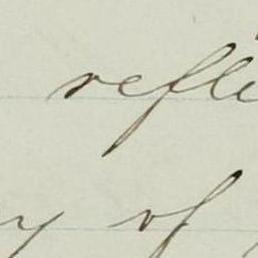 refle
y of